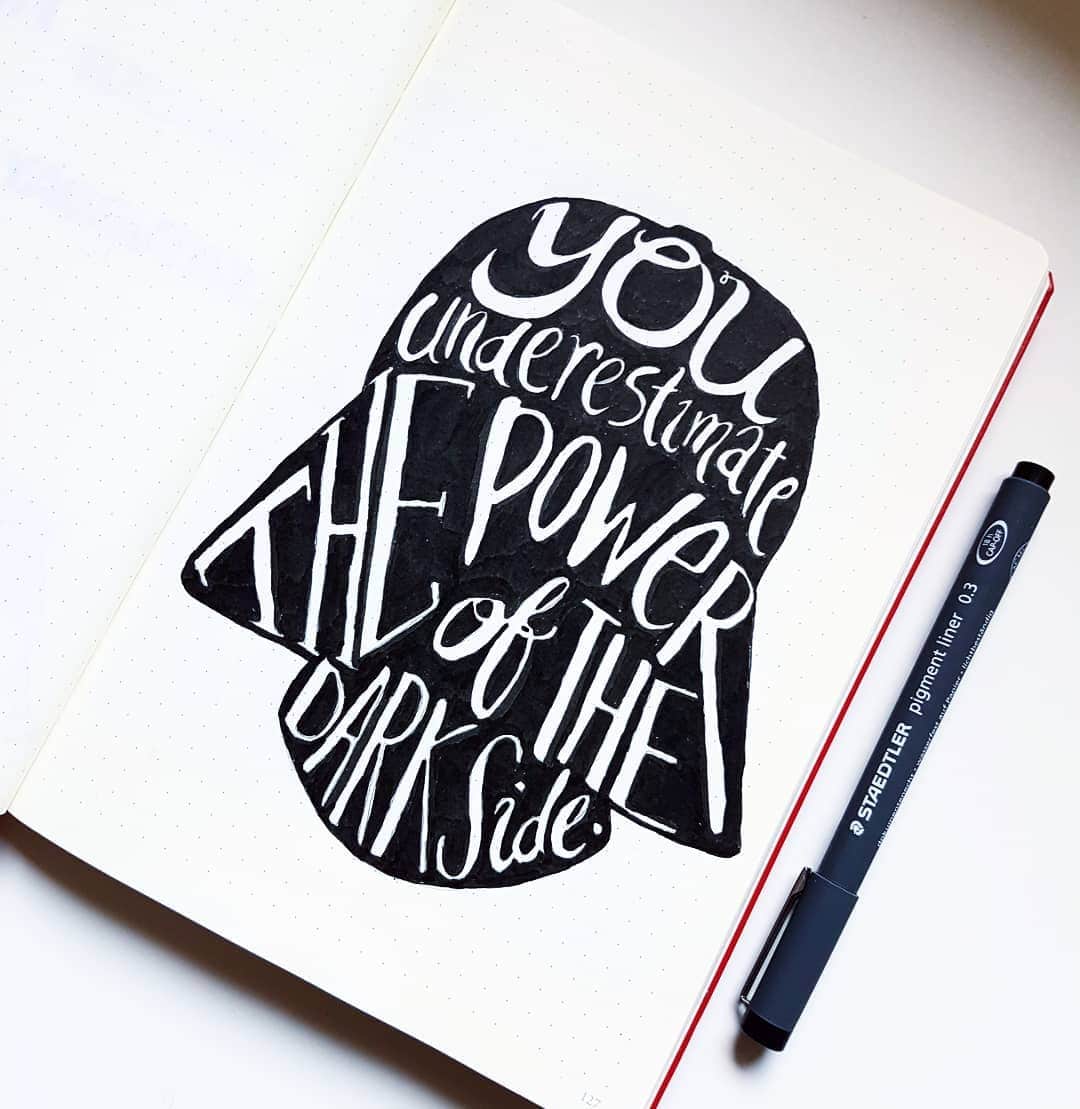 you
underestimate
THE POWER
of THE
DARK Side.
STAEDTLER pigment liner 0.3
18 h
CAP-OFF
127